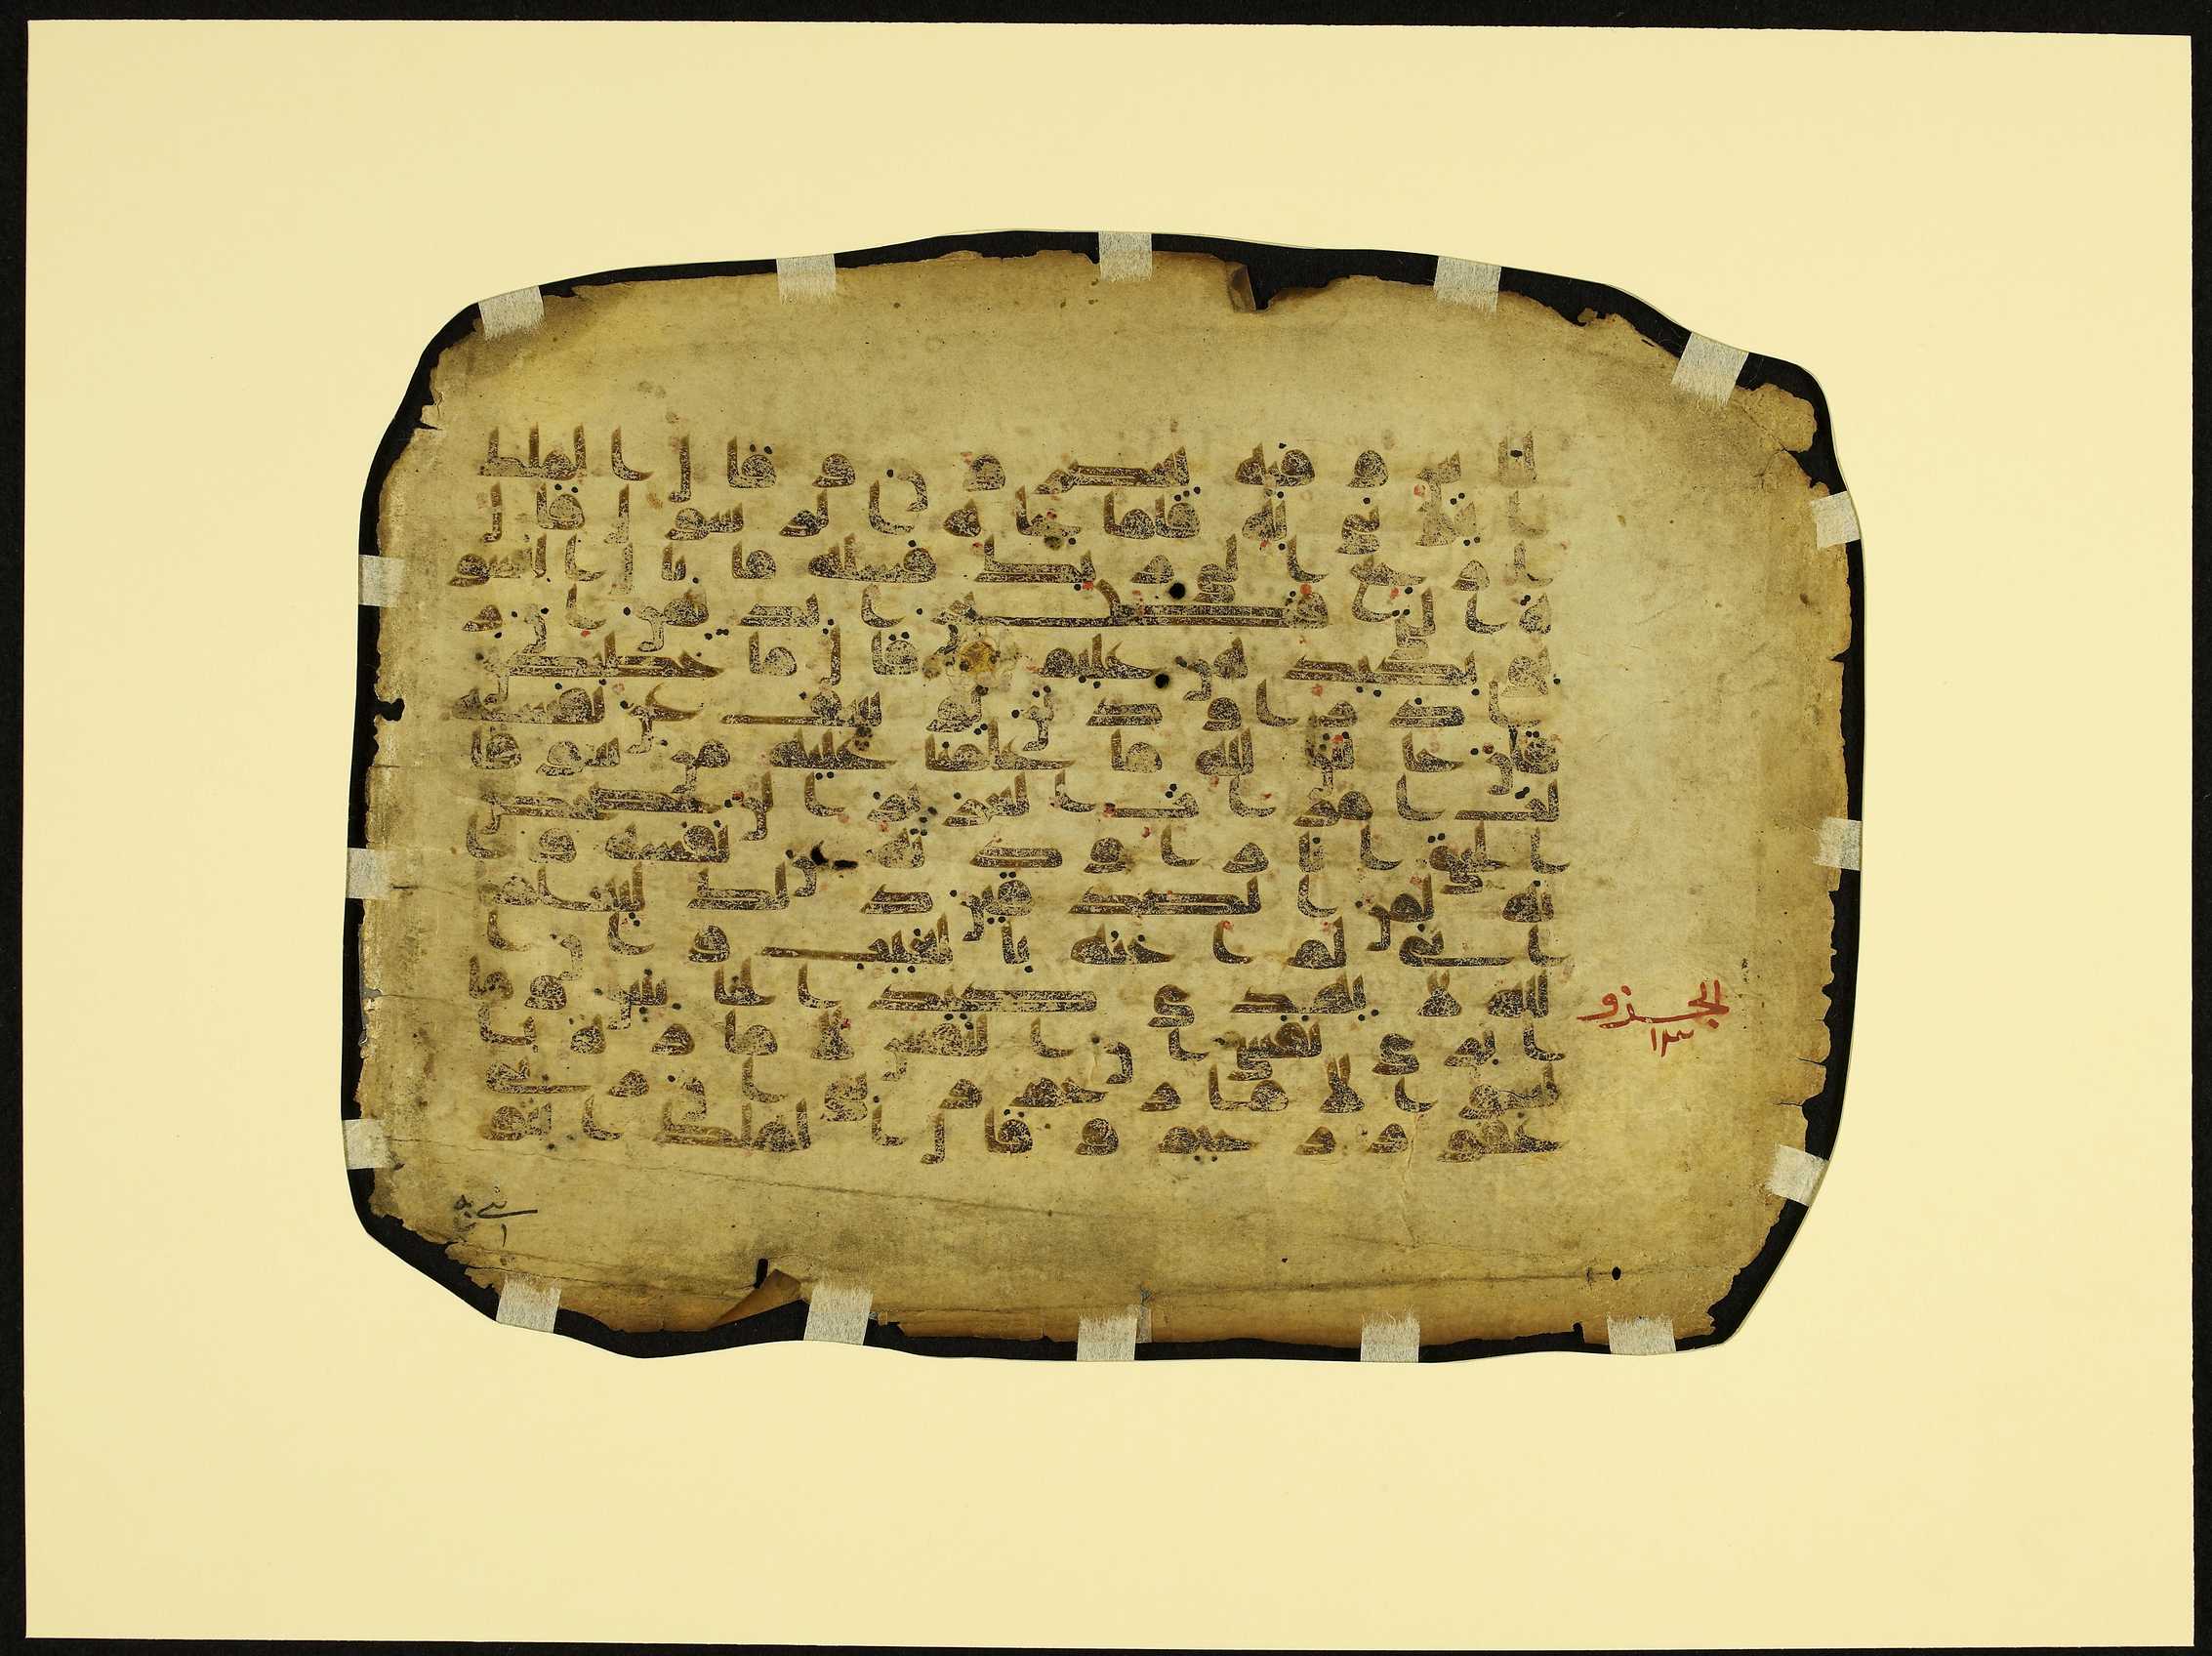 الناس وفيه يعصرون وقال الملك
ايتوني به فلما جاه الرسول قال
ارجع الى ربك فسله ما بال النسو
ة التي قطعن ايديهن ان ر
بي بكيدهن عليم قال ما خطبكن
اذ راودتن يوسف عن نفسه
قلن حاش لله ما علمنا عليه من سو قا
لت امرات العزيز الن حصحص
الحق انا راودته عن نفسه وا
نه لمن الصدقين ذلك ليعلم
اني لم اخنه بالغيب وان ا
لله لا يهدي كيد الخاينين وما
ابري نفسي ان النفس لامارة با
لسو الا ما رحم ربي ان ربي
غفور رحيم وقال الملك ايتو
الجزو
١٣